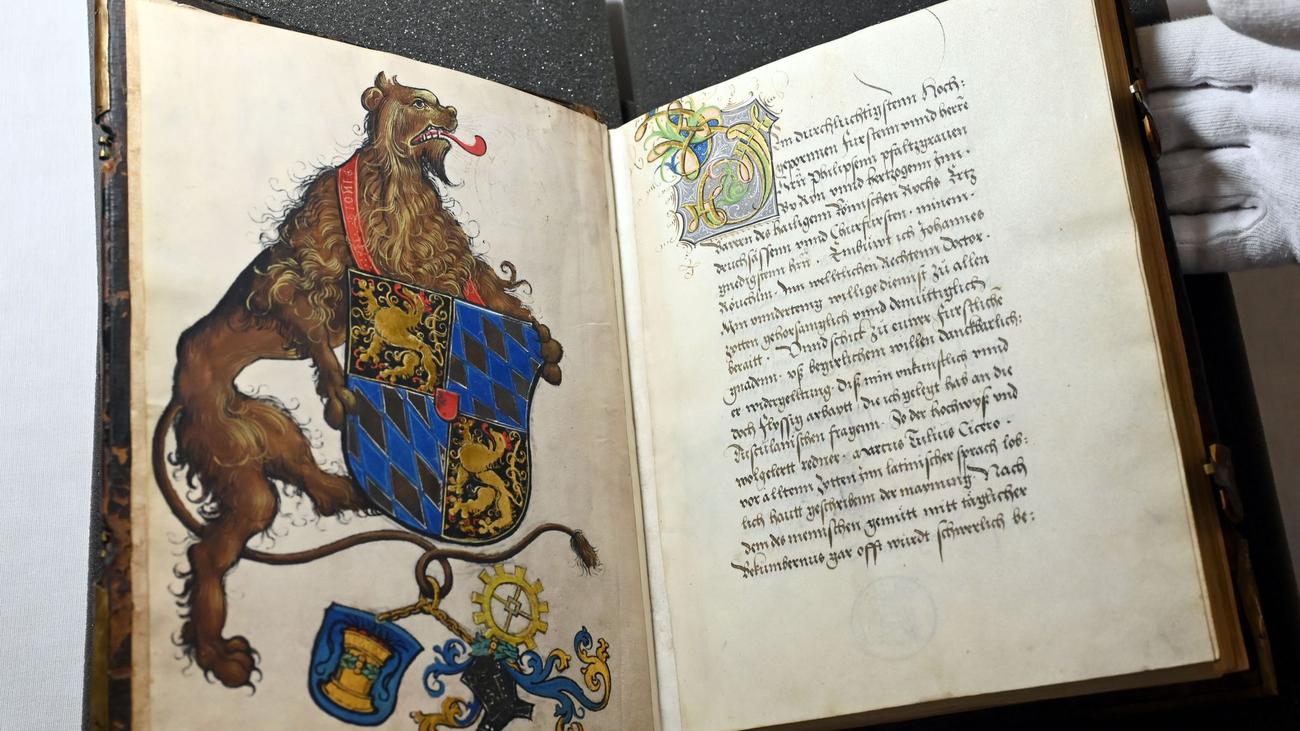 Em durchluchtigstenn Hoch:
gepornnen Fürstenn vnnd herrn
herrn Philipsenn pfaltzgrauen
By Ryn vnnd hertzogenn Inn
Bayern des hailigenn Römischen Rychs Ertz
druchsässenn vnnd Churfürsten. minem
gnedigstenn hrn. Embiut ich Johannes
Reuchlin Inn weltlichen Rechtenn doctor.
Min vndertenig willige dienst zů allen
zytten gehorsamglich vnnd demüttiglich
beraitt. Vnnd schick zů euwer fürstliche
gnadenn. vß begirlichem willen danckbarlich:
er widergelttung. diß min vnkunstlich vnnd
doch flyssig arbaytt. die ich gelegt hab an die
Tusculanischen fragenn. So der hochwyß vnd
wolgelertt redner. Marcus Tulius Cicero.
vor alltenn zytten Inn latinischer sprach lob:
lich hautt geschribenn der maynung. Nach
dem des menschen gemütt mitt täglicher
Bekümbernus gar offt würdt schwerlich be: